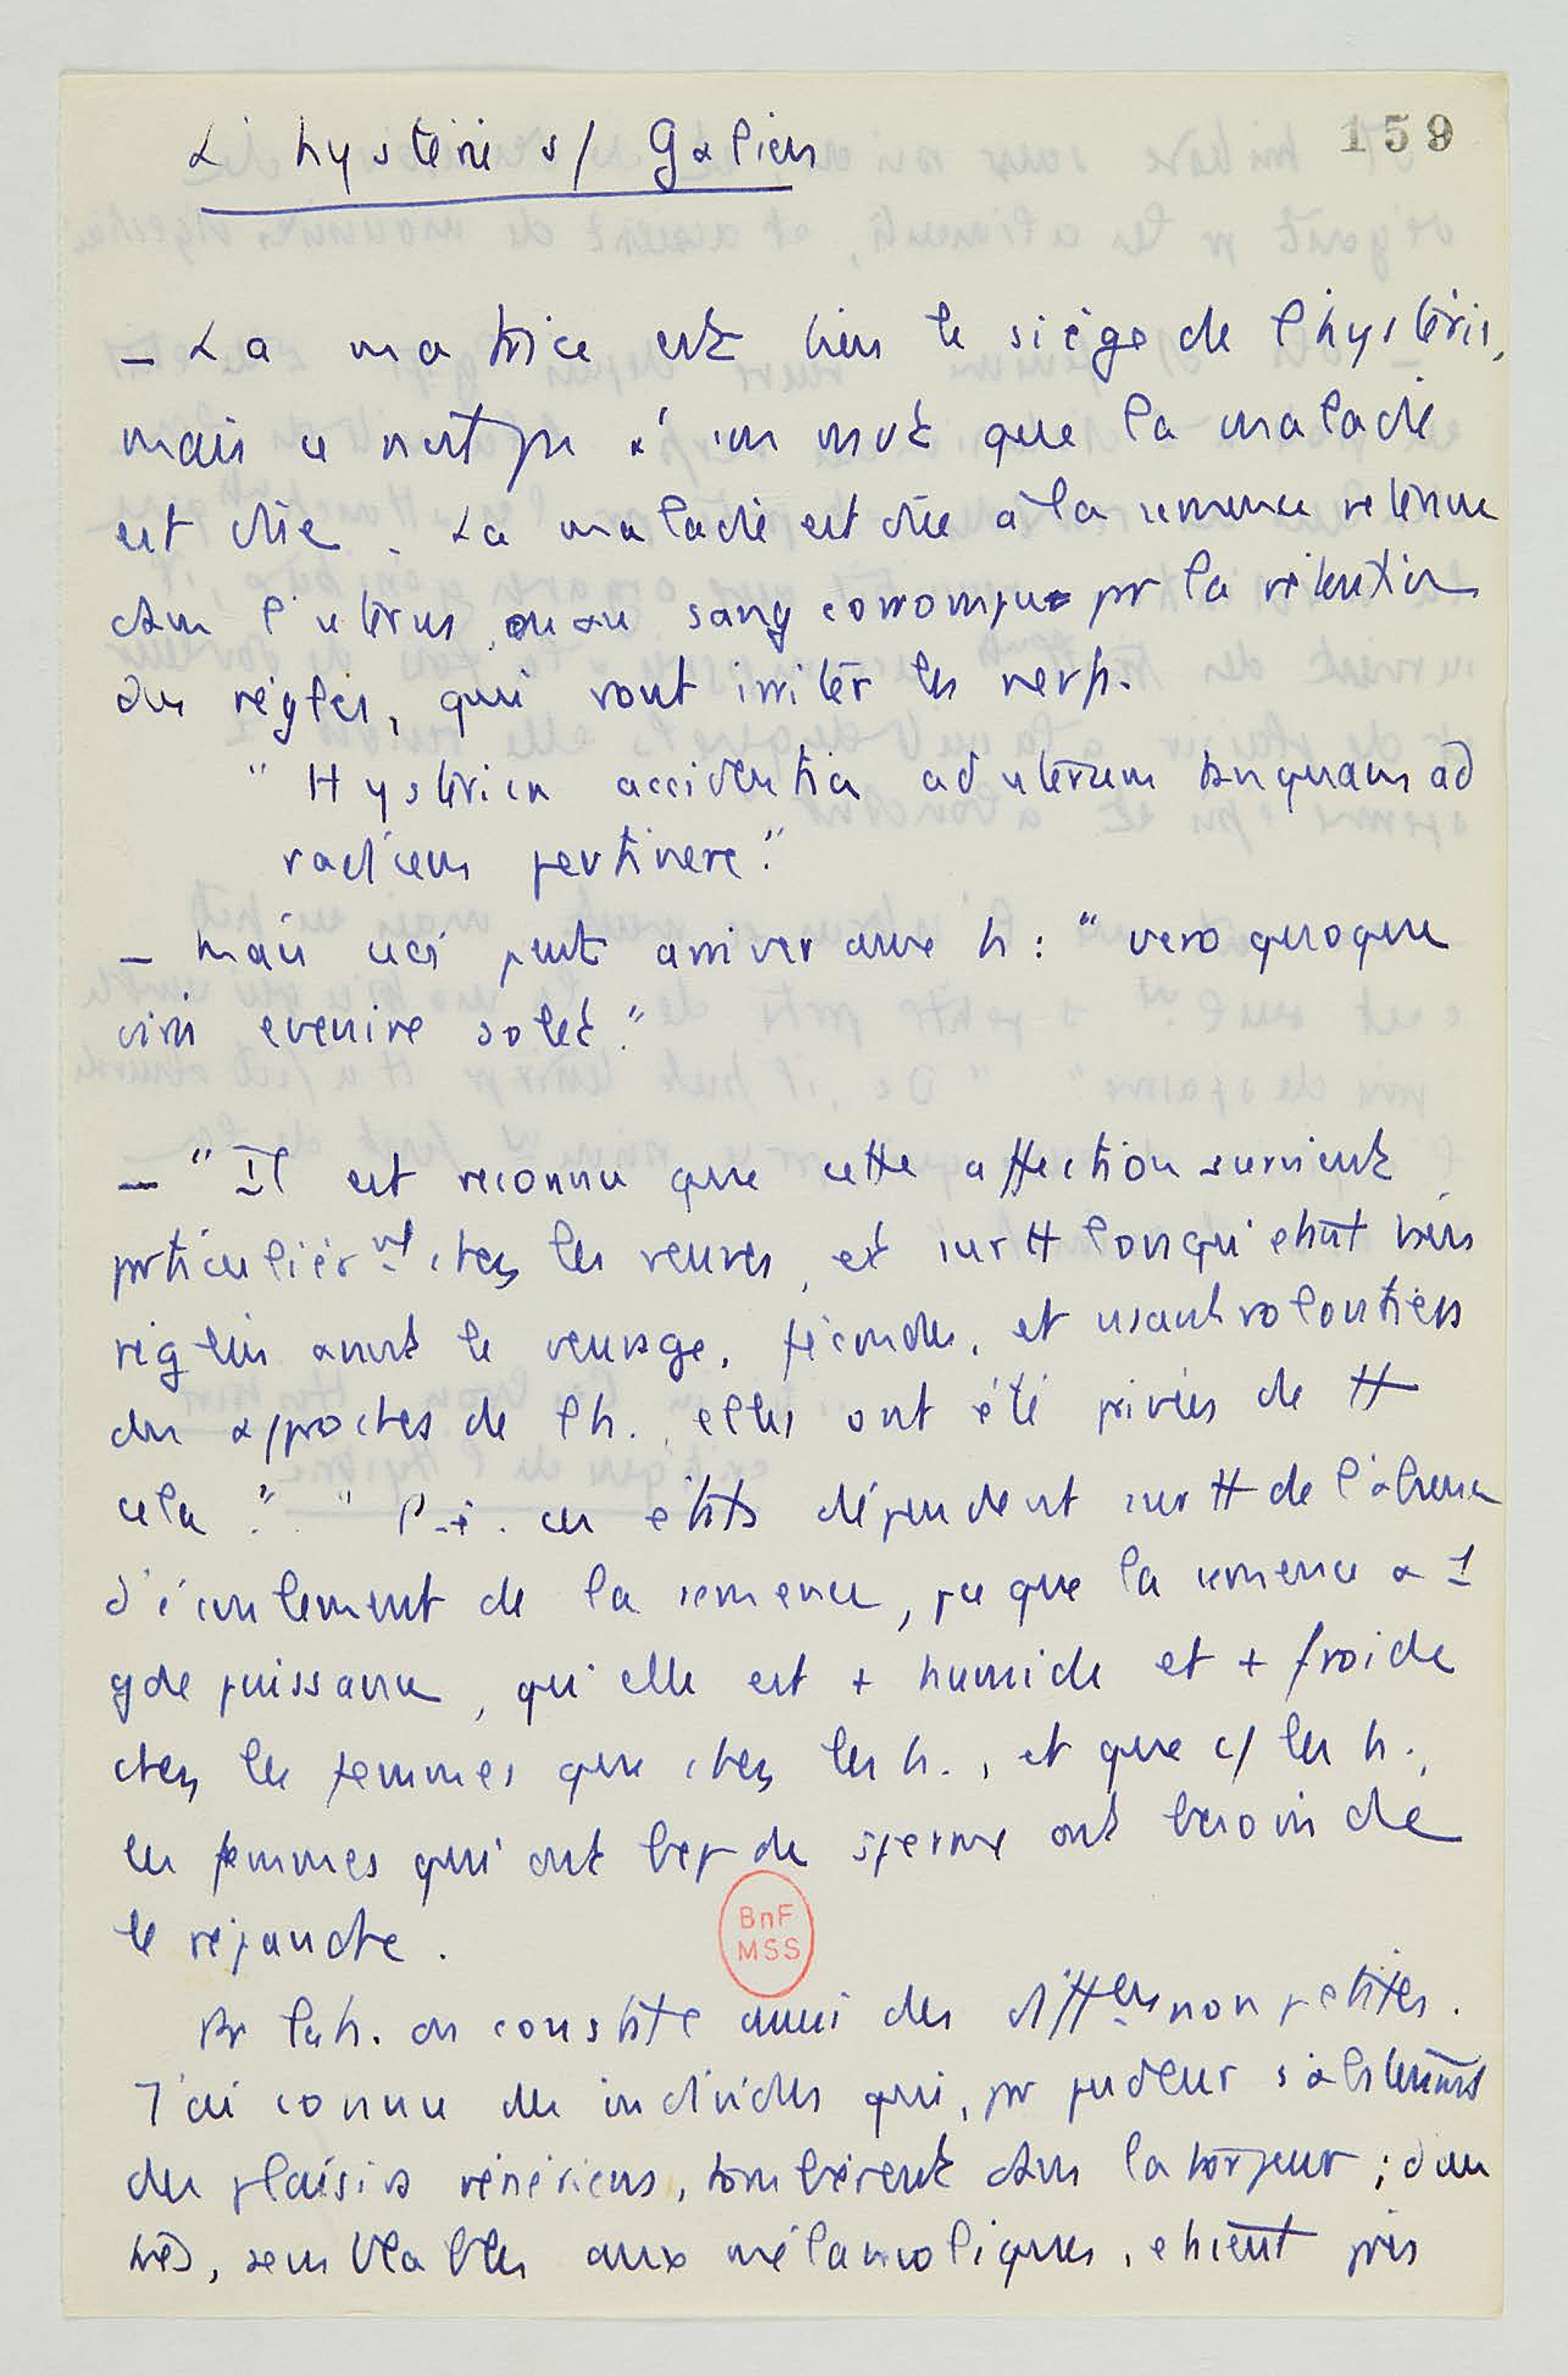 159
L'hystérie s/ Galien
– La matrice est bien le siège de l'hystérie,
mais ce n'est pas à son mvt que la maladie
est due. La maladie est due à la semence retenue
dans l'uterus, ou au sang corrompu par la rétention
des règles, qui vont irriter les nerfs.
"Hysterica accidentia ad uterum tanquam ad
radicem pertinere."
– Mais ceci peut arriver aux h : "vero quoque
viris evenire solet."
– "Il est reconnu que cette affection survient
particulièrmt chez les veuves, et surtt lorsqu'étant bien
réglées avant le veuvage, fécondes, et usant volontiers
des approches de l'h. elles ont été privées de tt
cela". " P.ê. ces états dépendent surtt de l'absence
d'écoulement de la semence, pce que la semence a 1
gde puissance, qu'elle est + humide et + froide
chez les femmes que chez les h., et que c/ les h.,
les femmes qui ont bcp de sperme ont besoin de
le répandre.
les h. on constate aussi des difftes non petites.
J'ai connu des individus qui, pr pudeur s'abstenant
des plaisirs vénériens, tombèrent dans la torpeur ; d'au
tres, semblables aux mélancoliques, étaient pris
BnF
MSS